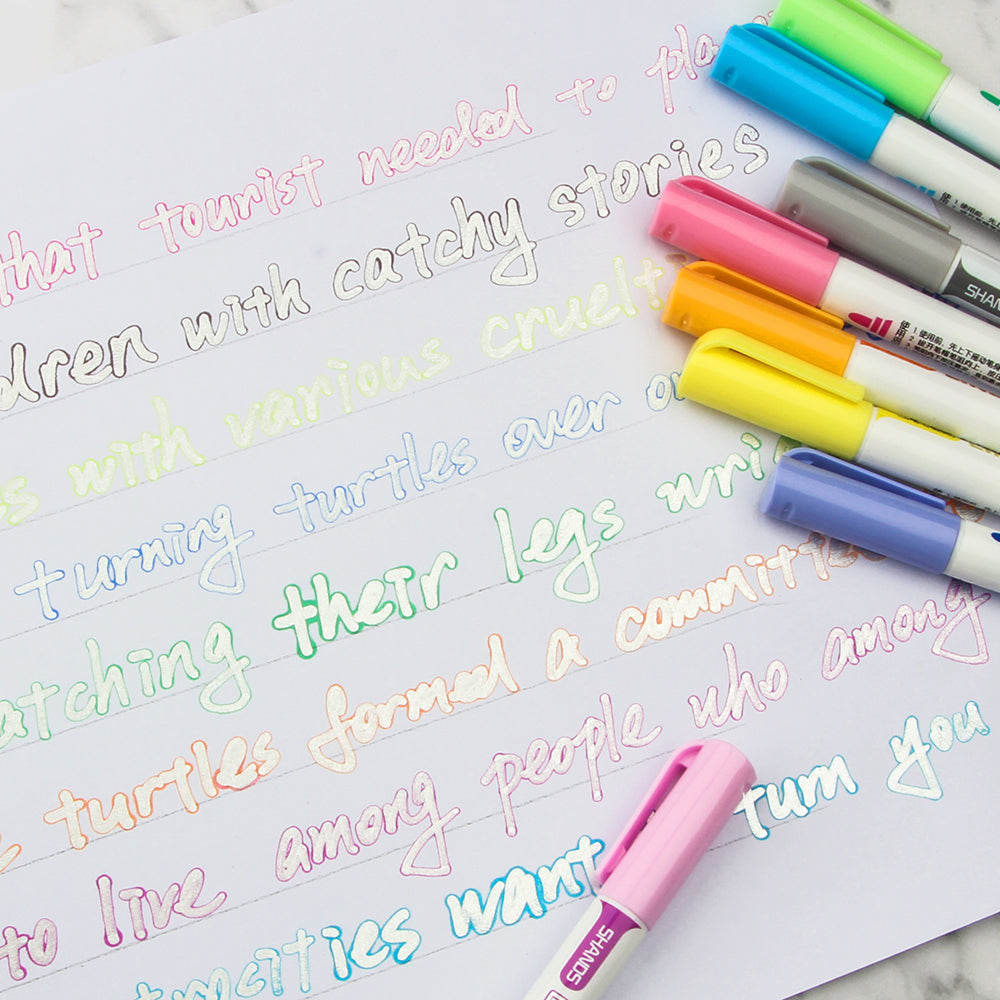 that tourist needed to pla
ldren with catchy stories
s with various cruelt
turning turtles over o
atching their legs wri
turtles formed a committe
to live among people who among
trocities want turn you
SHANDS
SHAN